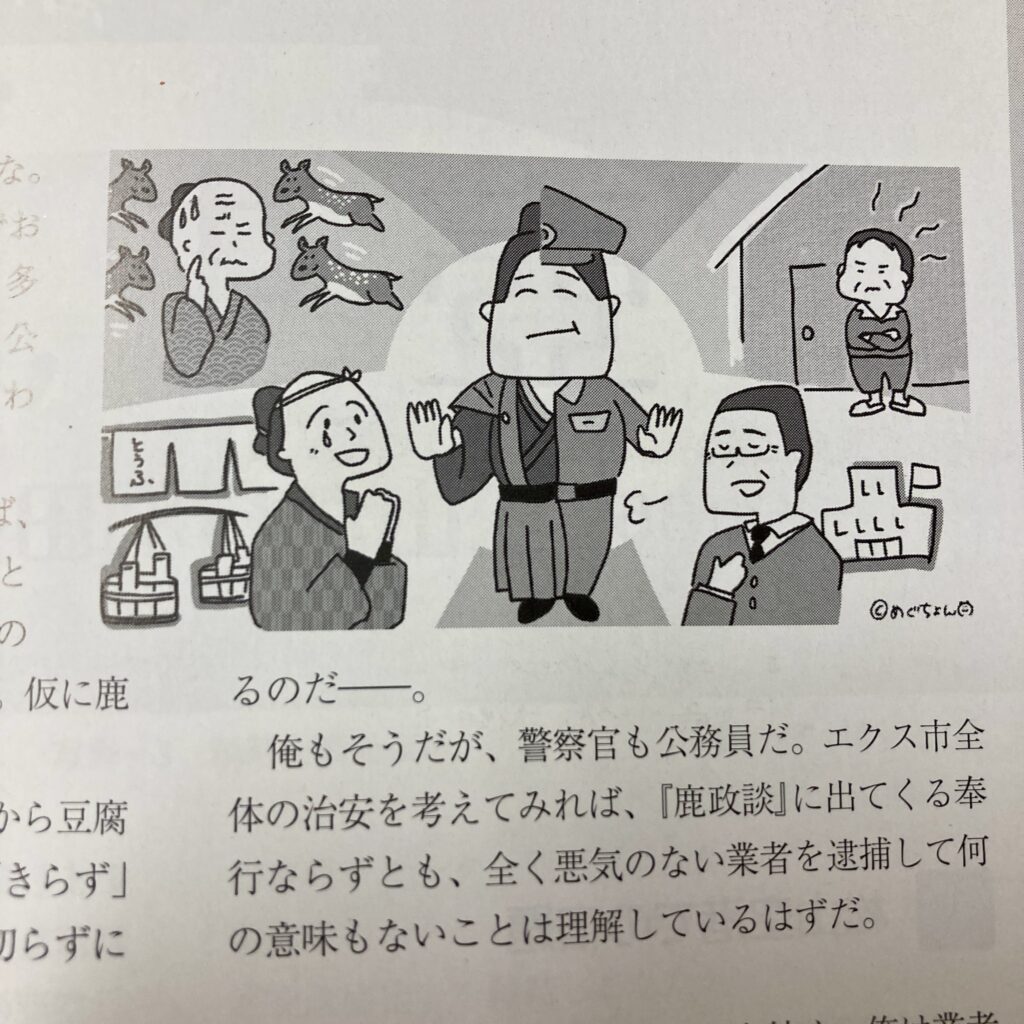 な。
お
多
公
わ
ば、
と
の
。仮に鹿
から豆腐
「きらず」
切らずに
とうふ
©めぐちょん
るのだ――。
俺もそうだが、警察官も公務員だ。エクス市全
体の治安を考えてみれば、『鹿政談』に出てくる奉
行ならずとも、全く悪気のない業者を逮捕して何
の意味もないことは理解しているはずだ。
俺は業者